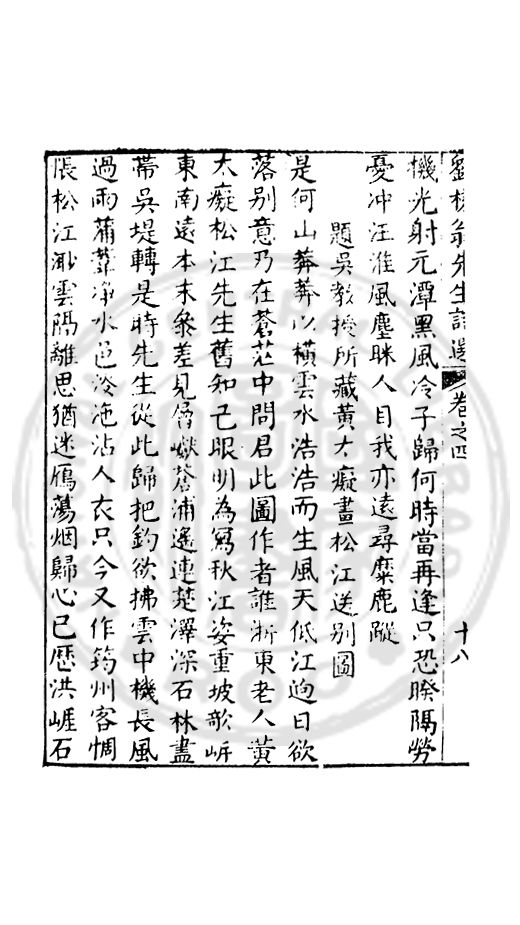 劉槎翁先生詩選 卷之四 十八
機光射元潭黑風冷子歸何時當再逢只恐睽隔勞
憂冲汪淮風塵眯人目我亦遠尋麋鹿蹤
題吳教授所藏黃大癡畫松江送別圖
是何山莽莽以橫雲水浩浩而生風天低江迥日欲
落别意乃在蒼茫中問君此圖作者誰浙東老人黃
大癡松江先生舊知己眼明為寫秋江姿重坡欹岸
東南遠本末叅差見層巘蒼浦遙連楚澤深石林盡
帶吳堤轉是時先生從此歸把釣欲拂雲中機長風
過雨蒲葦凈水邑冷𣵠沾人衣只今又作筠州客惆
悵松江渺雲隔離思猶迷鴈蕩烟歸心已歷洪崖石